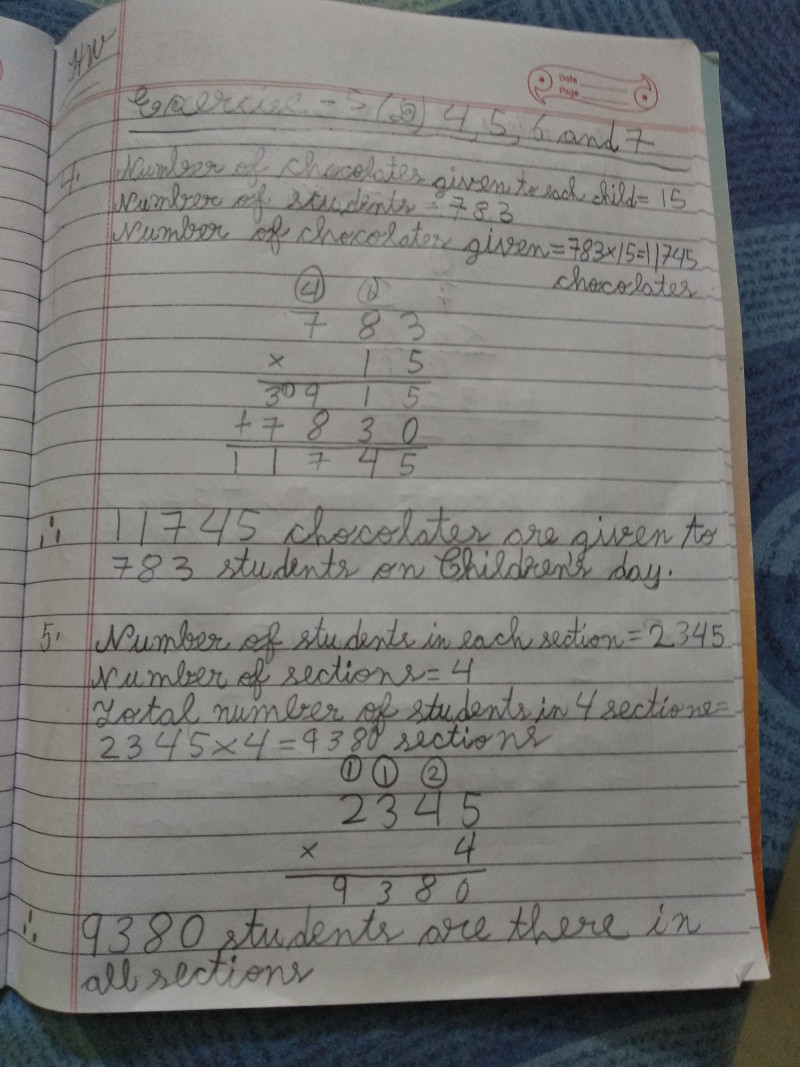 HW
Date
Page
Exercise - 5 (B) 4, 5, 6 and 7
4. Number of chocolates given to each child = 15
Number of students = 783
Number of chocolates given = 783×15=11745
chocolates
④ ①
7 8 3
× 1 5
3 9 1 5
+ 7 8 3 0
1 1 7 4 5
∴ 11745 chocolates are given to
783 students on Children's day.
5. Number of students in each section = 2345
Number of sections = 4
Total number of students in 4 sections =
2345×4=9380 sections
① ① ②
2 3 4 5
× 4
9 3 8 0
∴ 9380 students are there in
all sections